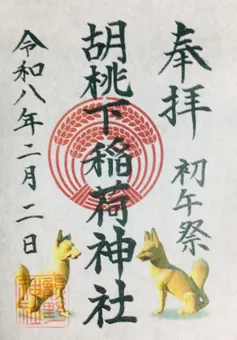 奉拝
初午祭
胡桃下稲荷神社
令和八年二月二日